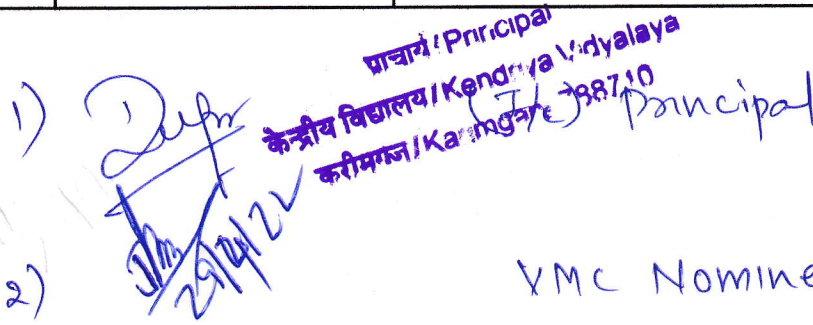 प्राचार्य / Principal
केन्द्रीय विद्यालय / Kendriya Vidyalaya
करीमगंज / Karimganj 788710
1) (I/c) Principal
29/4/22
2) VMC Nomine